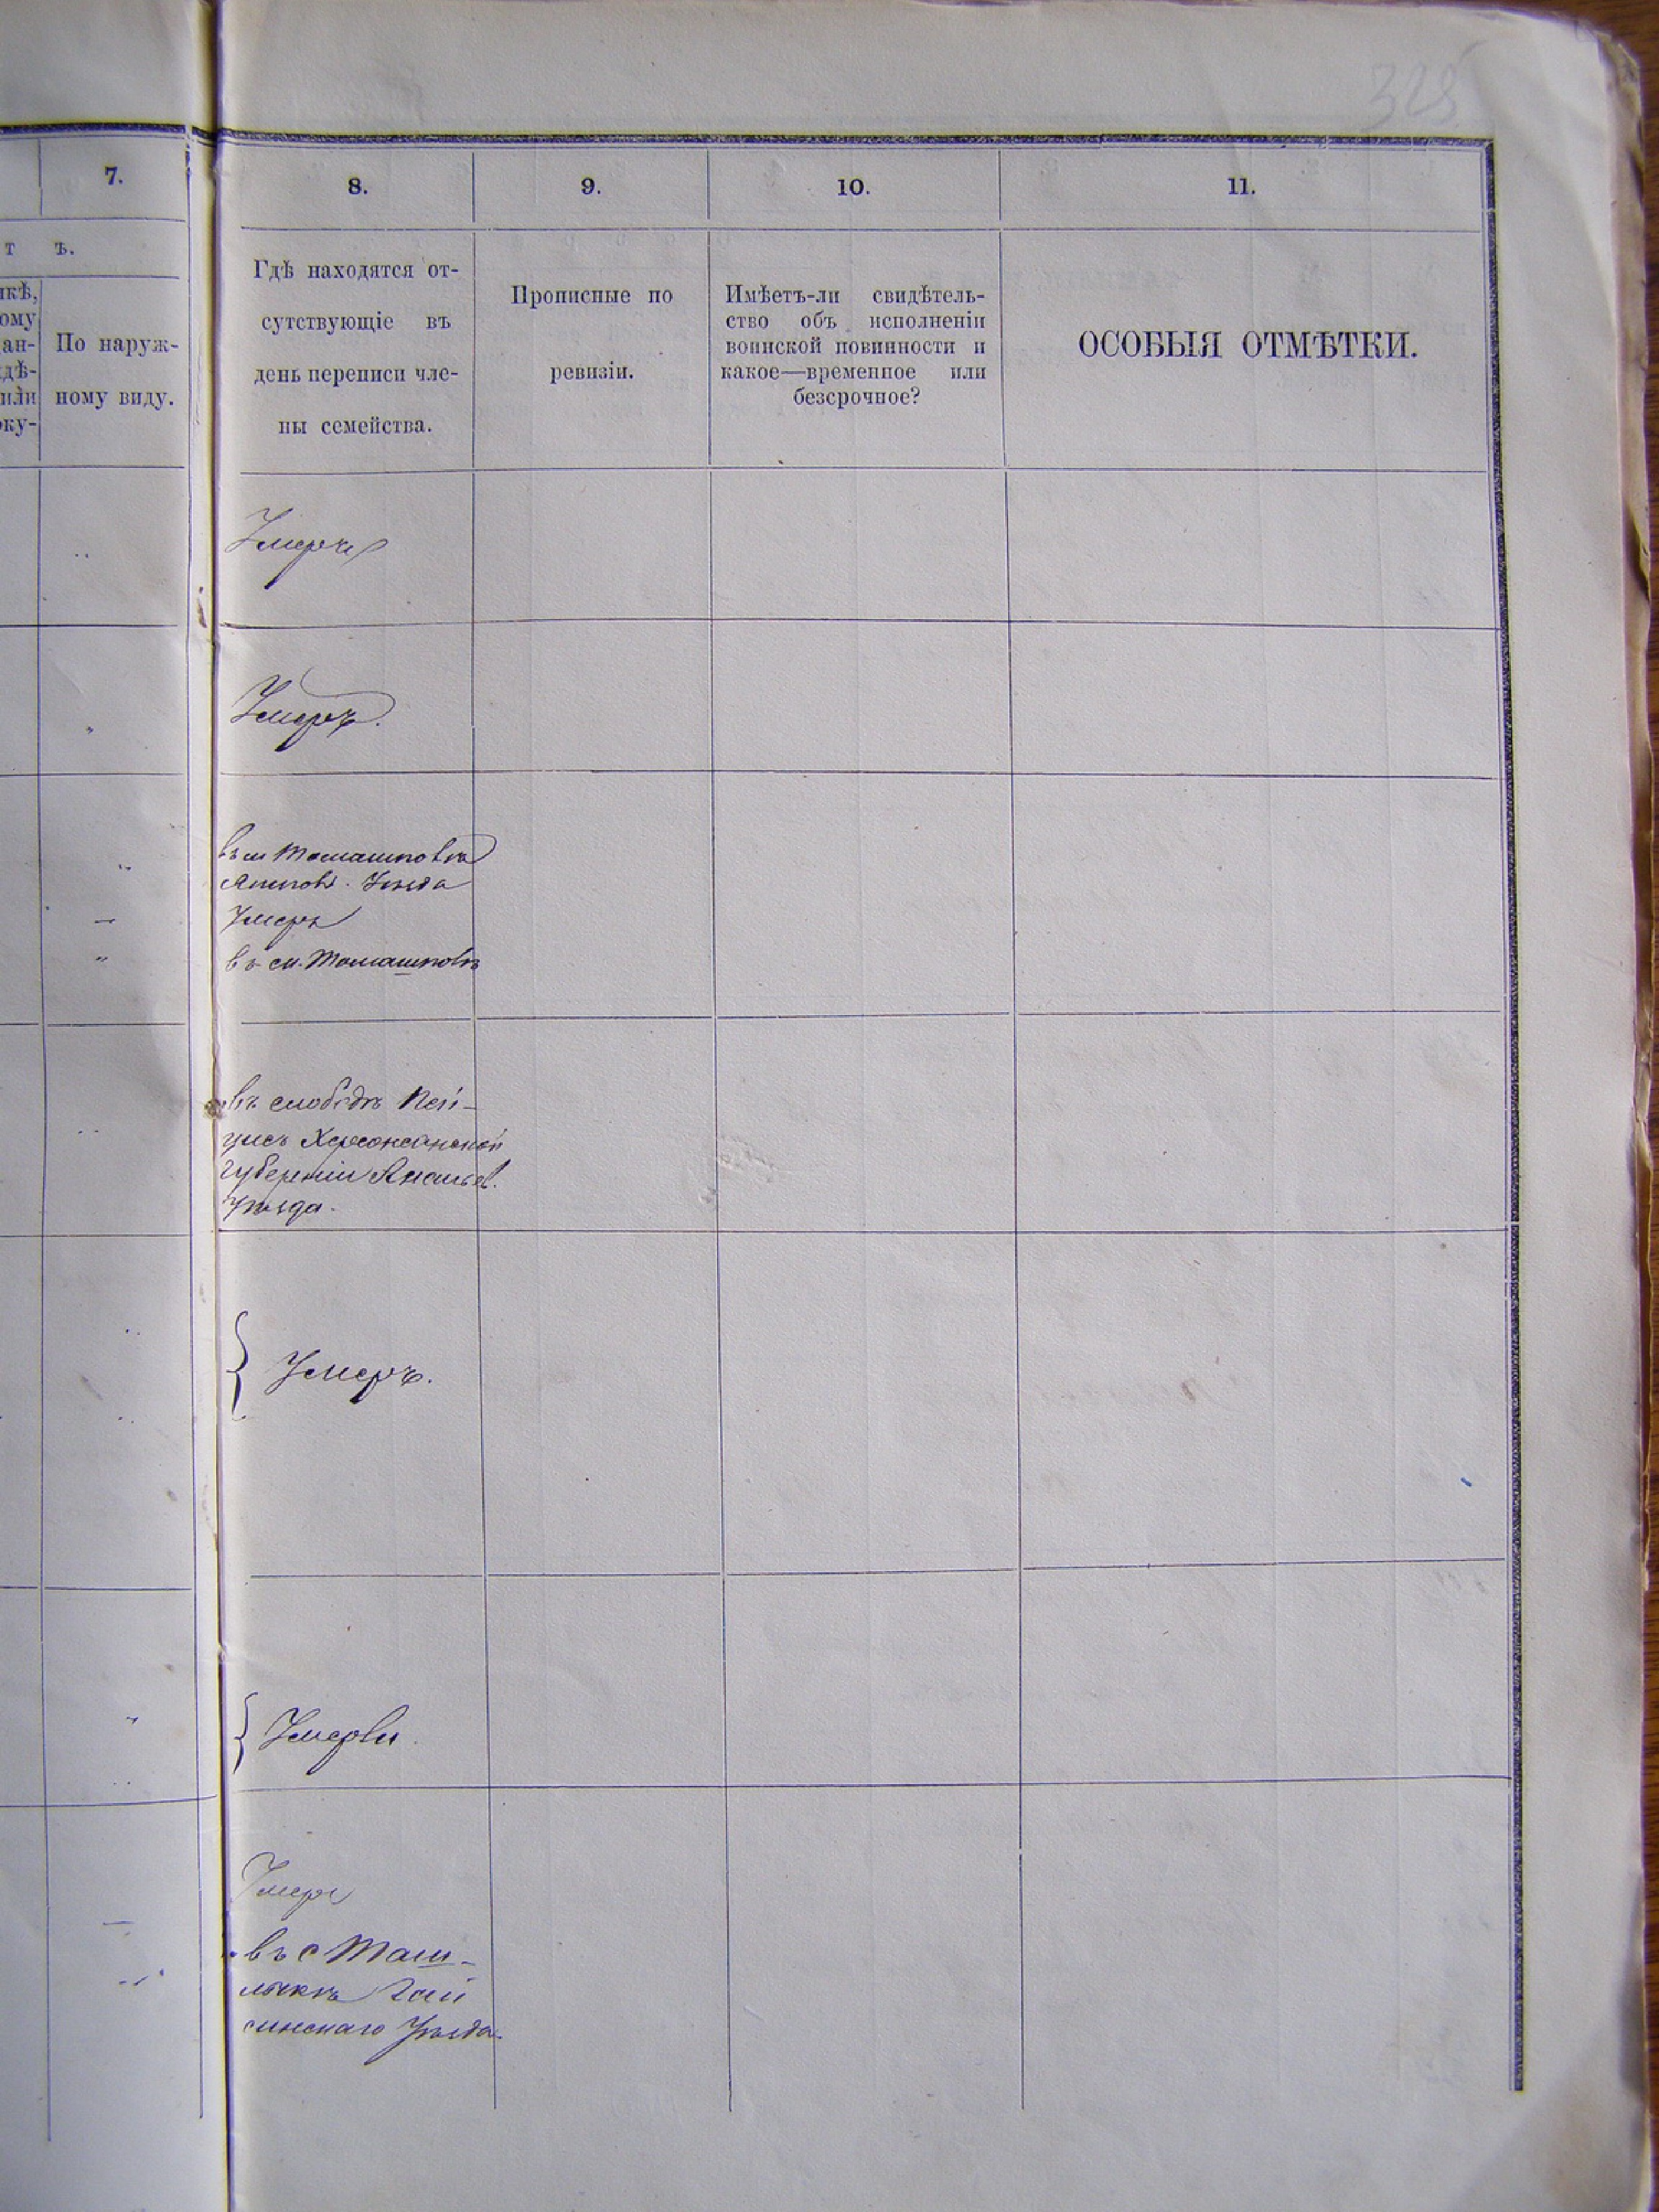 325
7.
8.
9.
10.
11.
т ъ.
икѣ,
ому
ан-
дѣ-
или
оку-
По наруж-
ному виду.
Гдѣ находятся от-
сутствующіе въ
день переписи чле-
ны семейства.
Прописные по
ревизіи.
Имѣетъ-ли свидѣтель-
ство объ исполненіи
воинской повинности и
какое—временное или
безсрочное?
ОСОБЫЯ ОТМѢТКИ.
Умеръ
Умеръ.
въ м Томашповкѣ
Ямпов. Уѣзда
Умеръ
въ м. Томашповкѣ
въ слободѣ
Херсонсанской
губерніи Ананьев.
Уѣзда.
Умеръ.
Умерли.
Умеръ
въ с Таш-
лыкѣ Гай
синскаго Уѣзда.